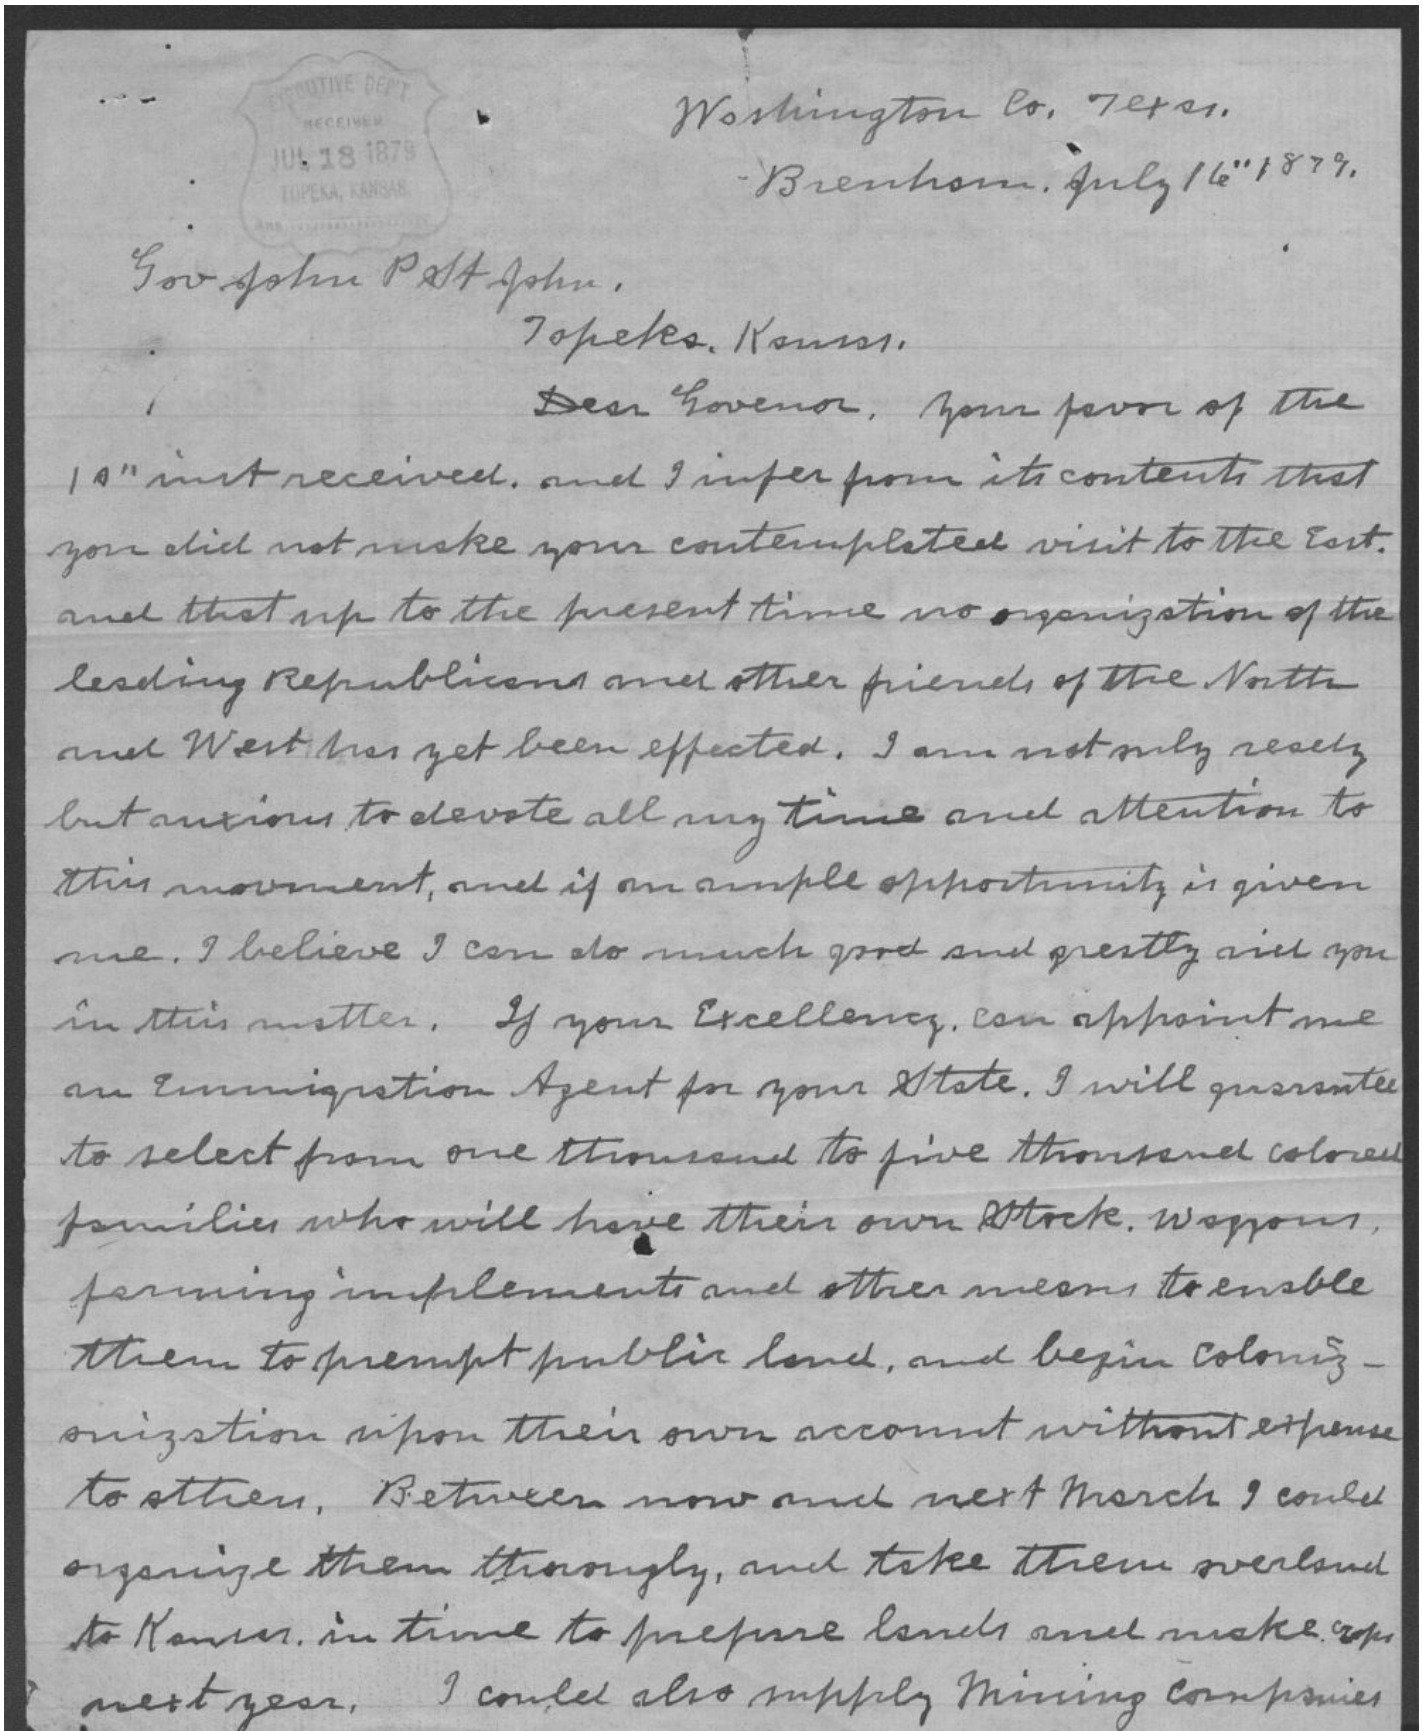 EXECUTIVE DEP'T
RECEIVED
JUL 18 1879
TOPEKA, KANSAS
Washington Co. Texas.
Brenham. July 16" 1879.
Gov John P St John.
Topeka. Kansas.
Dear Govenor. Your favor of the
10" inst received. and I infer from its contents that
you did not make your contemplated visit to the East.
and that up to the present time no organization of the
leading Republicans and other friends of the North
and West has yet been effected. I am not only ready
but anxious to devote all my time and attention to
this movment, and if an ample opportunity is given
me. I believe I can do much good and greatly aid you
in this matter. If your Excellency. can appoint me
an Emmigration Agent for your State. I will guarantee
to select from one thousand to five thousand colored
families who will have their own Stock. Waggons.
farming implements and other means to enable
them to prempt public land, and begin Coloniz-
onization upon their own account without expense
to others. Between now and next March I could
organize them thorougly, and take them overland
to Kansas. in time to prepare lands and make crops
next year. I could also supply Mining Companies